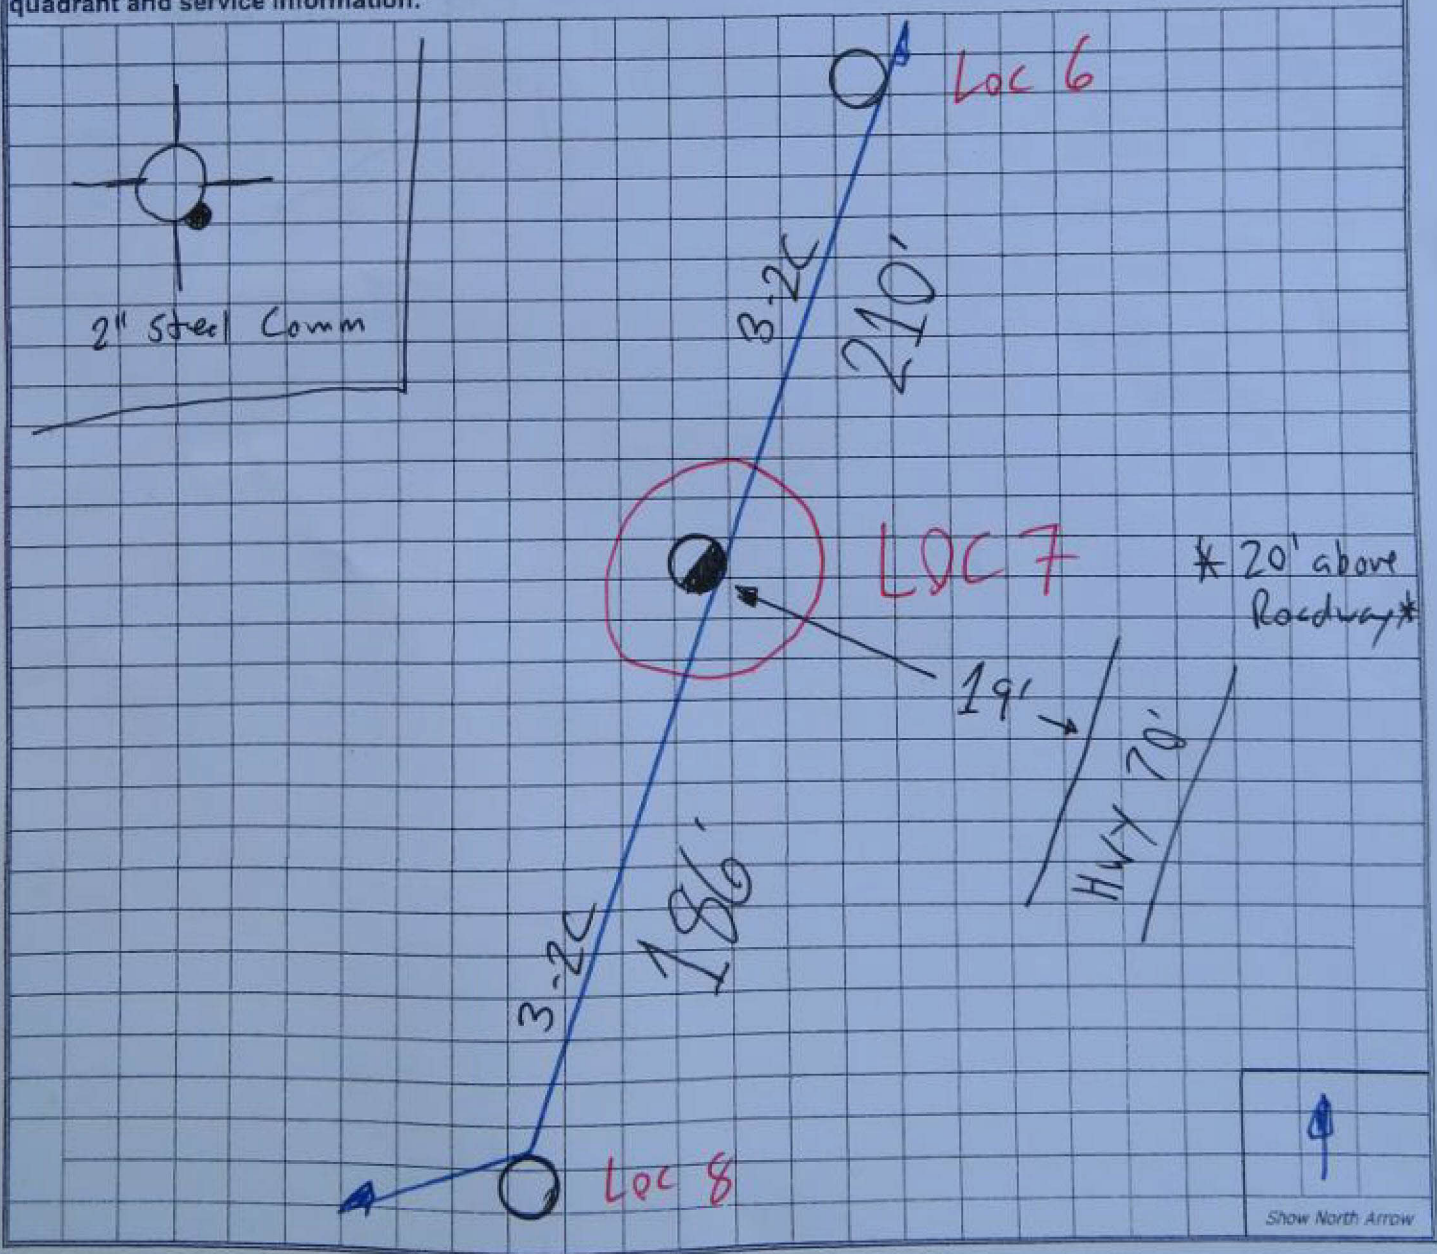 quadrant and service information.
Loc 6
2" Steel Comm
3-2C
210'
LOC 7
* 20' above
Roadway*
19'
HWY 70'
3-2C
186'
Loc 8
Show North Arrow